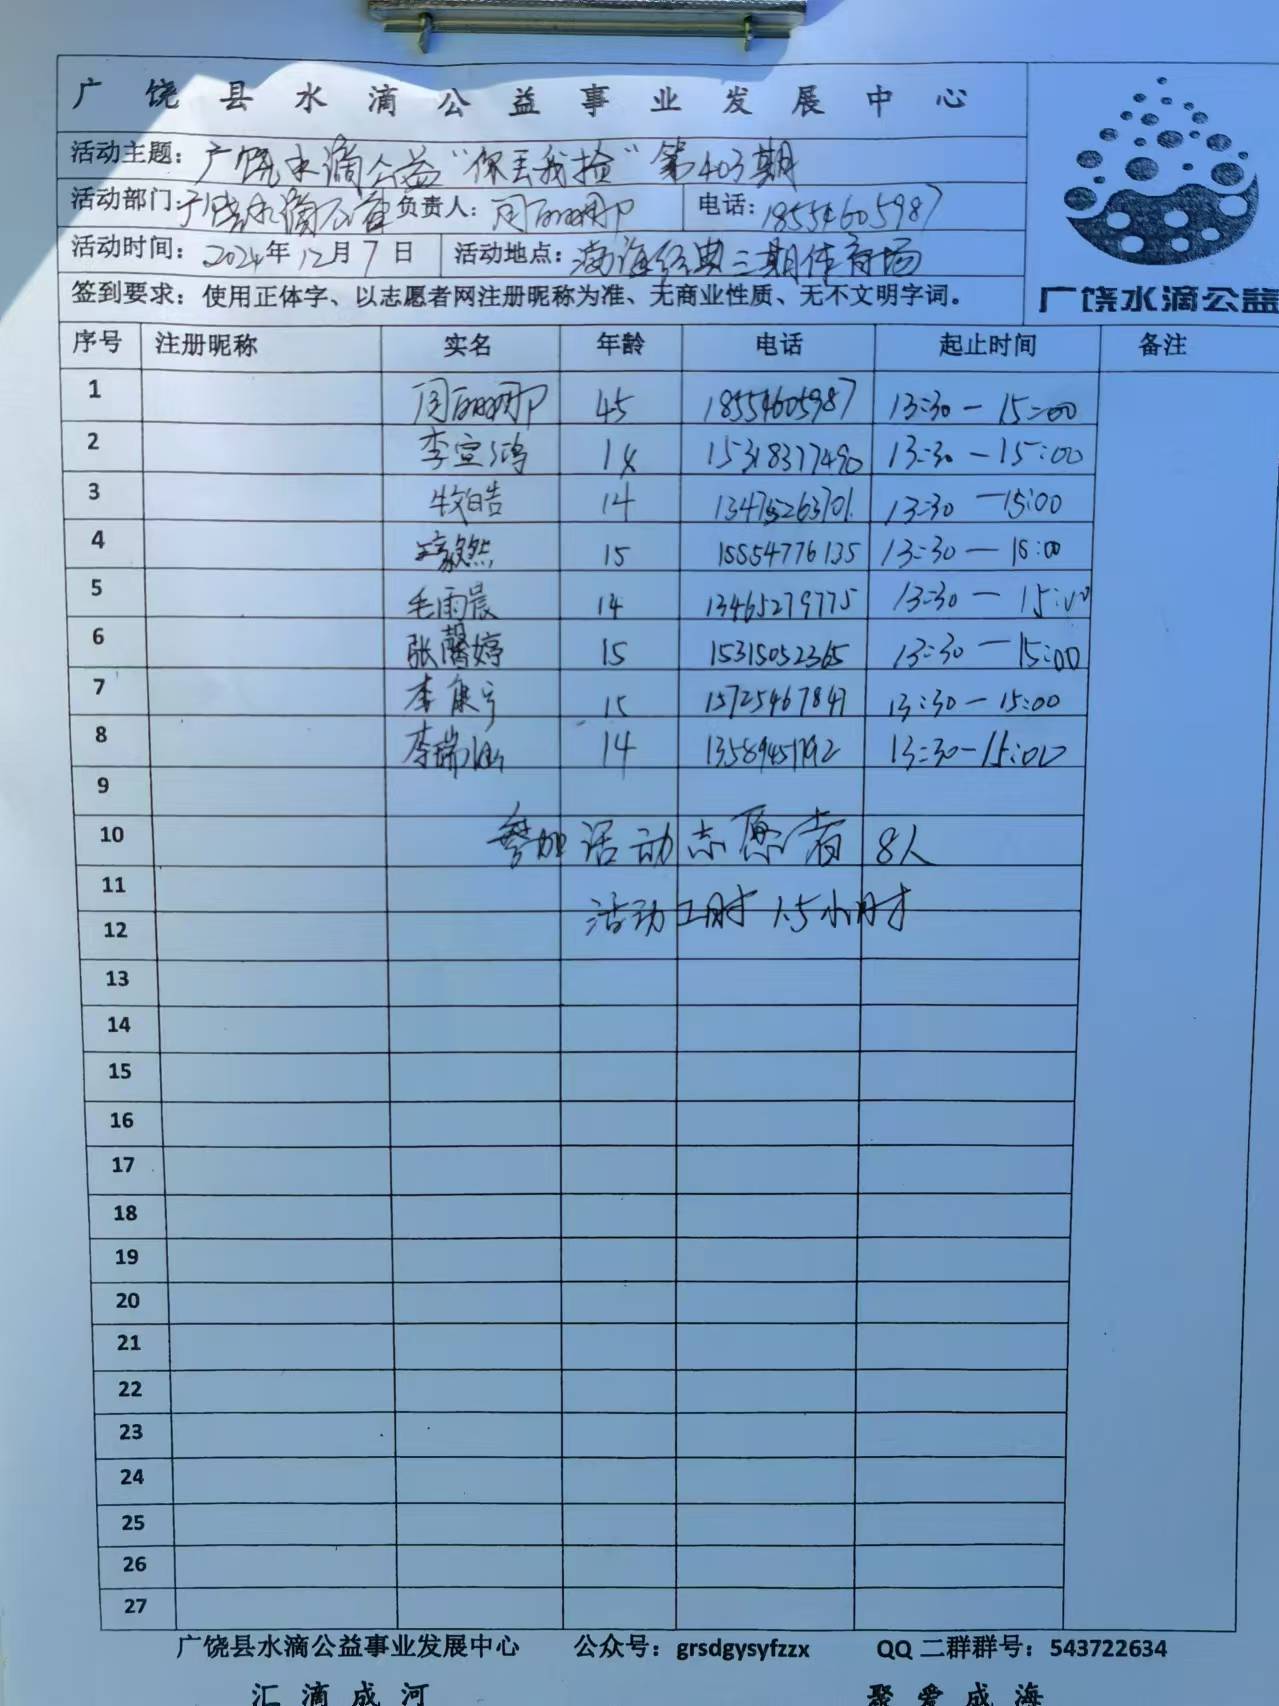 广饶县水滴公益事业发展中心
活动主题：广饶水滴公益“你丢我捡”第403期
活动部门：广饶水滴公益 负责人：周丽娜 电话：18554605987
活动时间：2024年12月7日 活动地点：渤海经典三期体育场
签到要求：使用正体字、以志愿者网注册昵称为准、无商业性质、无不文明字词。
广饶水滴公益
序号 注册昵称 实名 年龄 电话 起止时间 备注
1 周丽娜 45 18554605987 13:30—15:00
2 李宣鸿 14 15318377490 13:30—15:00
3 牧皓 14 13475263701 13:30—15:00
4 15 15554776135 13:30—15:00
5 毛雨晨 14 13465279775 13:30—15:00
6 张馨婷 15 15315052365 13:30—15:00
7 李康宁 15 15725467847 13:30—15:00
8 李瑞涵 14 13:30—15:00
9
10 参加活动志愿者8人
11
活动工时1.5小时
12
13
14
15
16
17
18
19
20
21
22
23
24
25
26
27
广饶县水滴公益事业发展中心 公众号：grsdgysyfzzx QQ二群群号：543722634
汇滴成河 聚爱成海